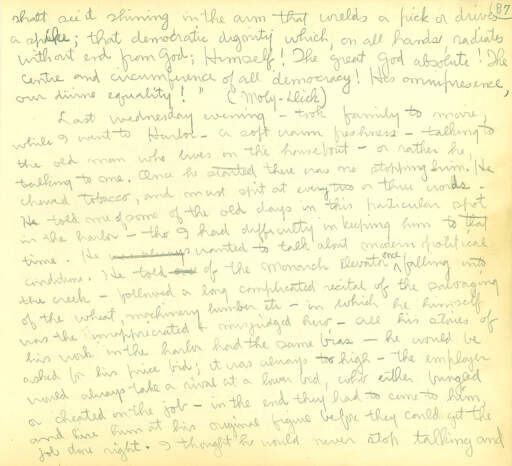 87
shalt see it shining in the arm that wields a pick or drives
a spike; that democratic dignity which, on all hands, radiates
without end from God; Himself! The great God absolute! The
centre and circumference of all democracy! His omnipresence,
our divine equality!" (Moby-Dick)
Last wednesday evening - took family to movie,
while I went to Harbor - a soft warm freshness - talking to
the old man who lives on the houseboat - or rather he,
talking to me. Once he started there was no stopping him. He
chewed tobacco, and must spit at every two or three words -
He told me of some of the old days in this particular spot
in the harbor - tho I had difficulty in keeping him to that
time. He wanted to talk about modern political
conditions. He told of the Monarch Elevator once falling into
the creek - followed a long complicated recital of the salvaging
of the wheat, machinery lumber etc - in which he himself
was the unappreciated + misjudged hero - all his stories of
his work in the harbor had the same bias - he would be
asked for his price bid; it was always to high - the employer
would always take a rival at a lower bid, who either bungled
or cheated on the job - in the end they had to come to him,
and hire him at his original figure before they could get the
job done right. I thought he would never stop talking and